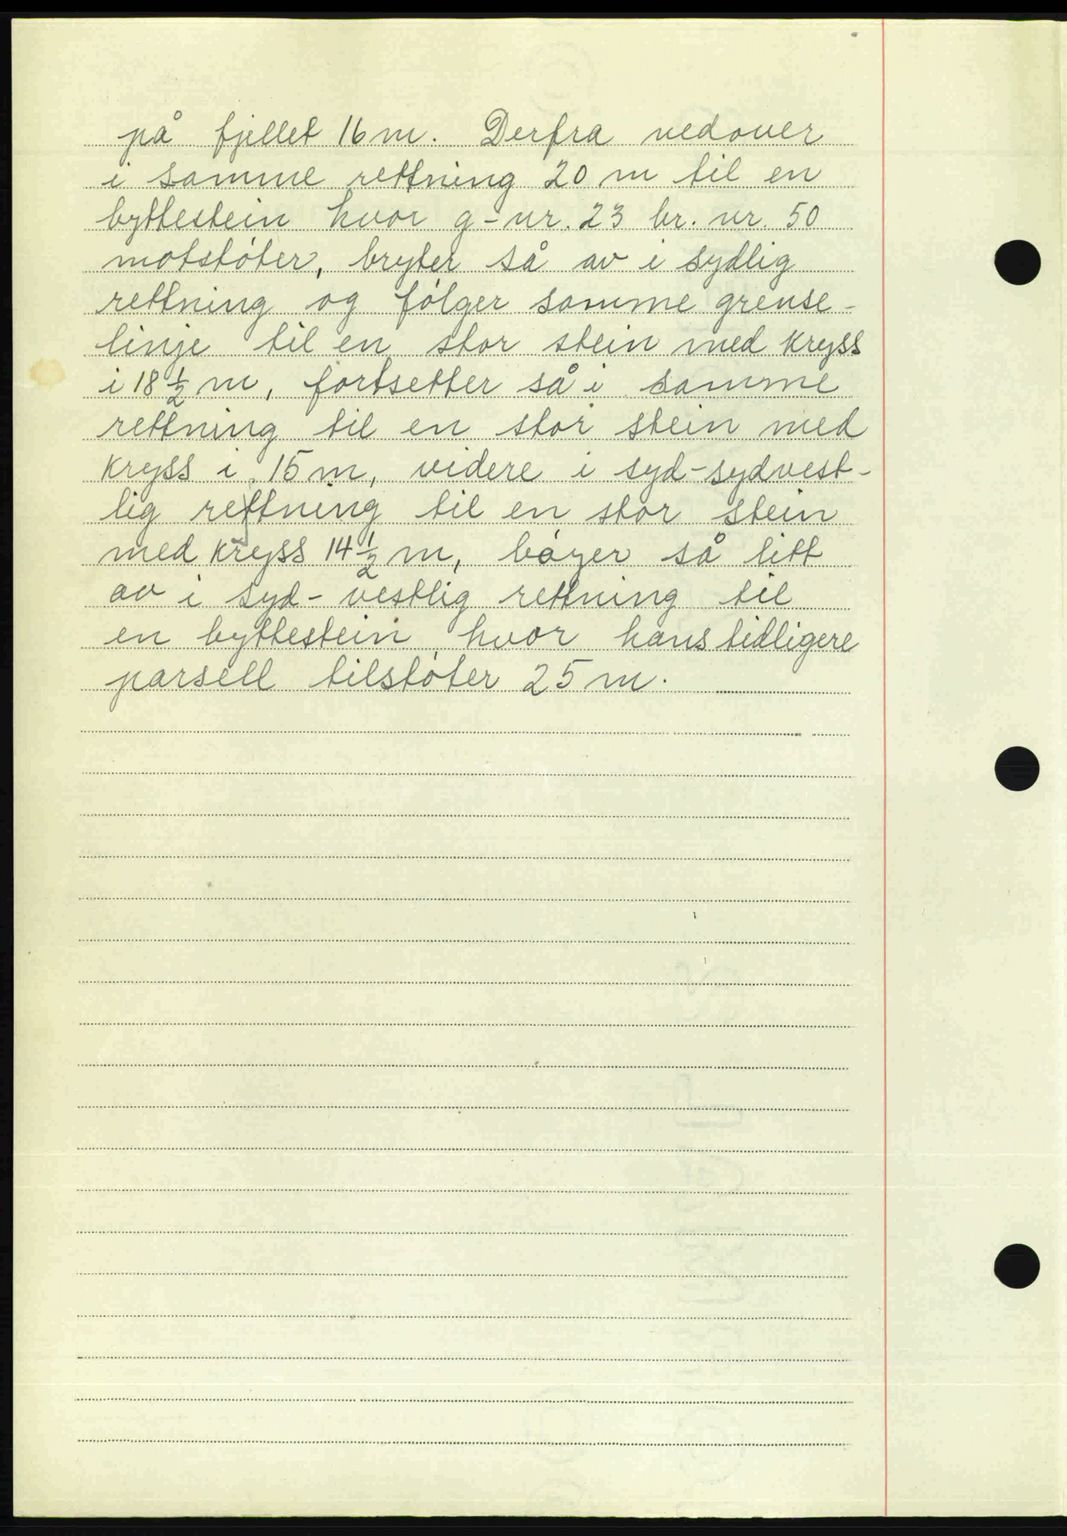 på fjellet 16 m. Derfra nedover
i samme rettning 20 m til en
byttestein hvor g-nr. 23 br. nr. 50
motstøter, bryter så av i sydlig
rettning og følger samme grense-
linje til en stor stein med kryss
i 18 ½ m, fortsetter så i samme
rettning til en stor stein med
kryss i 15 m, videre i syd-sydvest-
lig rettning til en stor stein
med kryss 14 ½ m, bøyer så litt
av i syd-vestlig rettning til
en byttestein hvor hans tidligere
parsell tilstøter 25 m.